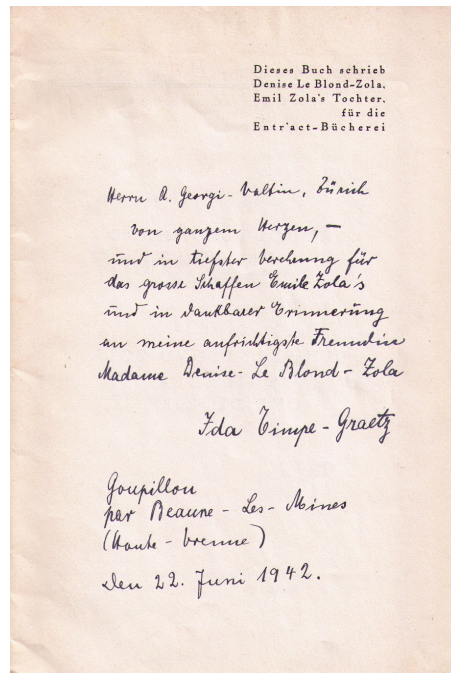 Dieses Buch schrieb
Denise Le Blond-Zola,
Emil Zola's Tochter,
für die
Entr'act-Bücherei
Herrn A. Georgi-Valtin, Zürich
von ganzem Herzen, –
und in tiefster Verehrung für
das grosse Schaffen Emile Zola's
und in dankbarer Erinnerung
an meine aufrichtigste Freundin
Madame Denise-Le Blond-Zola
Ida Timpe-Graetz
Goupillou
par Beaune-Les-Mines
(Haute-Vienne)
Den 22. Juni 1942.